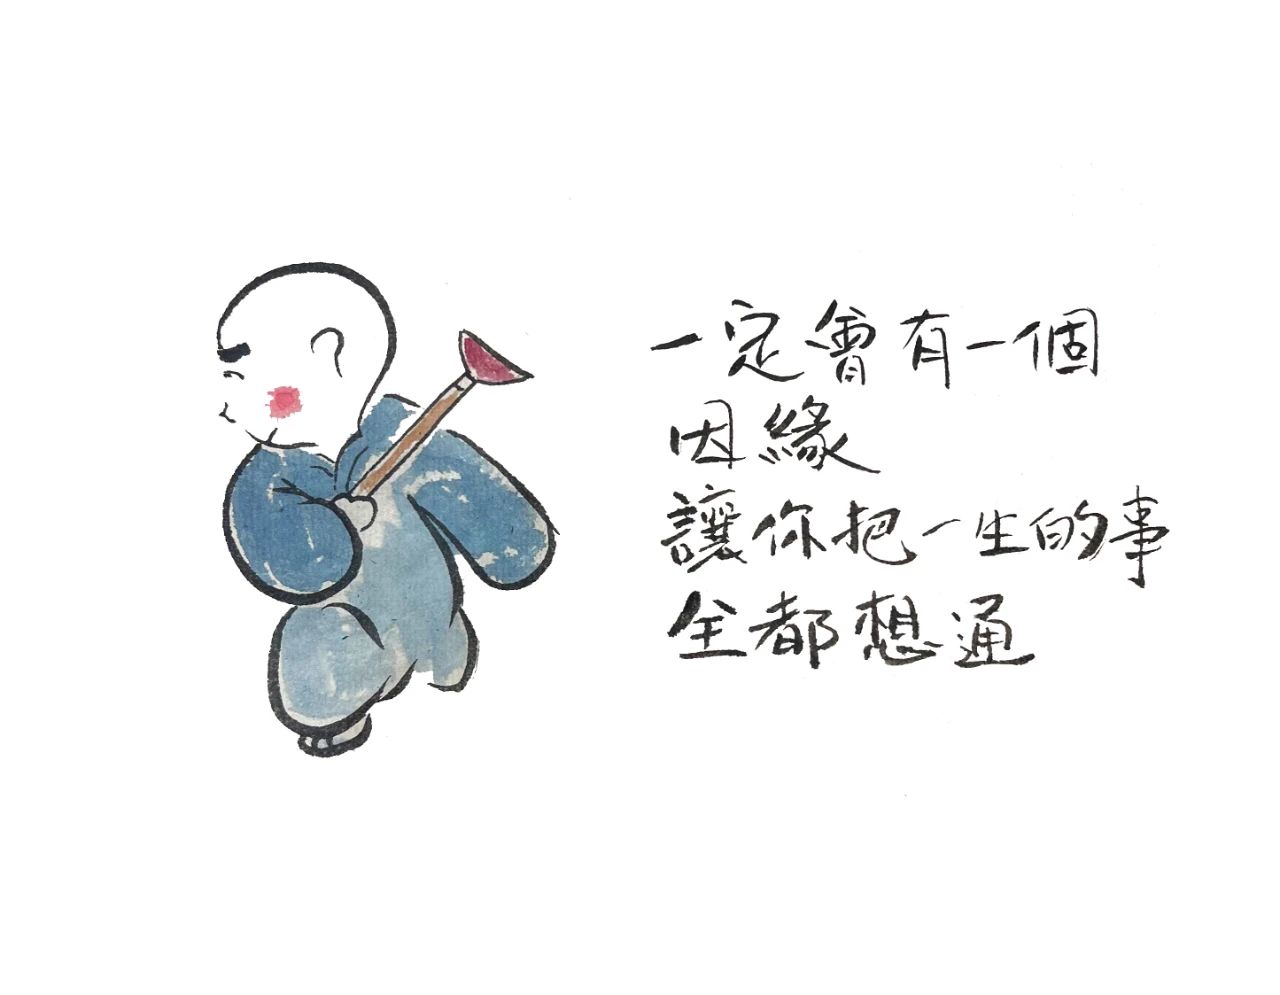 一定會有一個
因緣
讓你把一生的事
全都想通